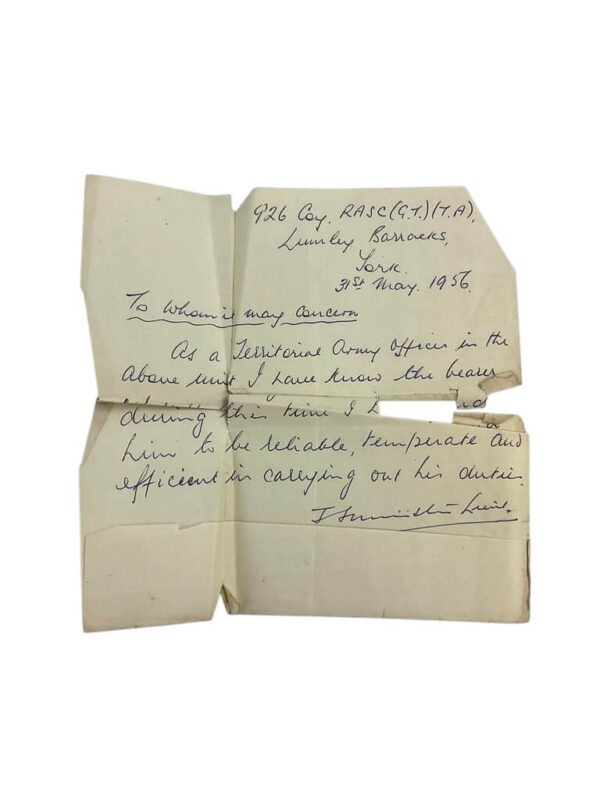 926 Coy. RASC (G.T.) (T.A),
Lumley Barracks,
York.
31st May. 1956.
To whom it may concern
As a Territorial Army Officer in the
above unit I have know the bearer
during this time I
him to be reliable, temperate and
efficient in carrying out his duties.